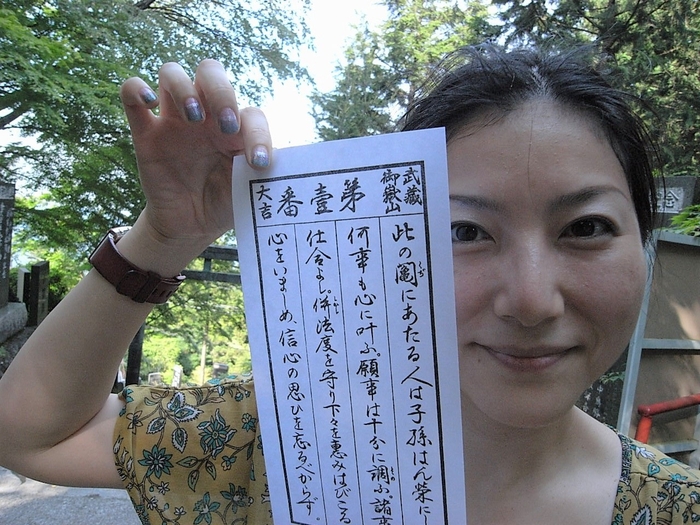 武蔵御嶽山 第壹番 大吉
此の鬮にあたる人は子孫はん榮にし
何事も心に叶ふ。願事は十分に調ふ。諸事
仕合よし。併法度を守り下々を惠みはびこる
心をいましめ、信心の思ひを忘るべからず。